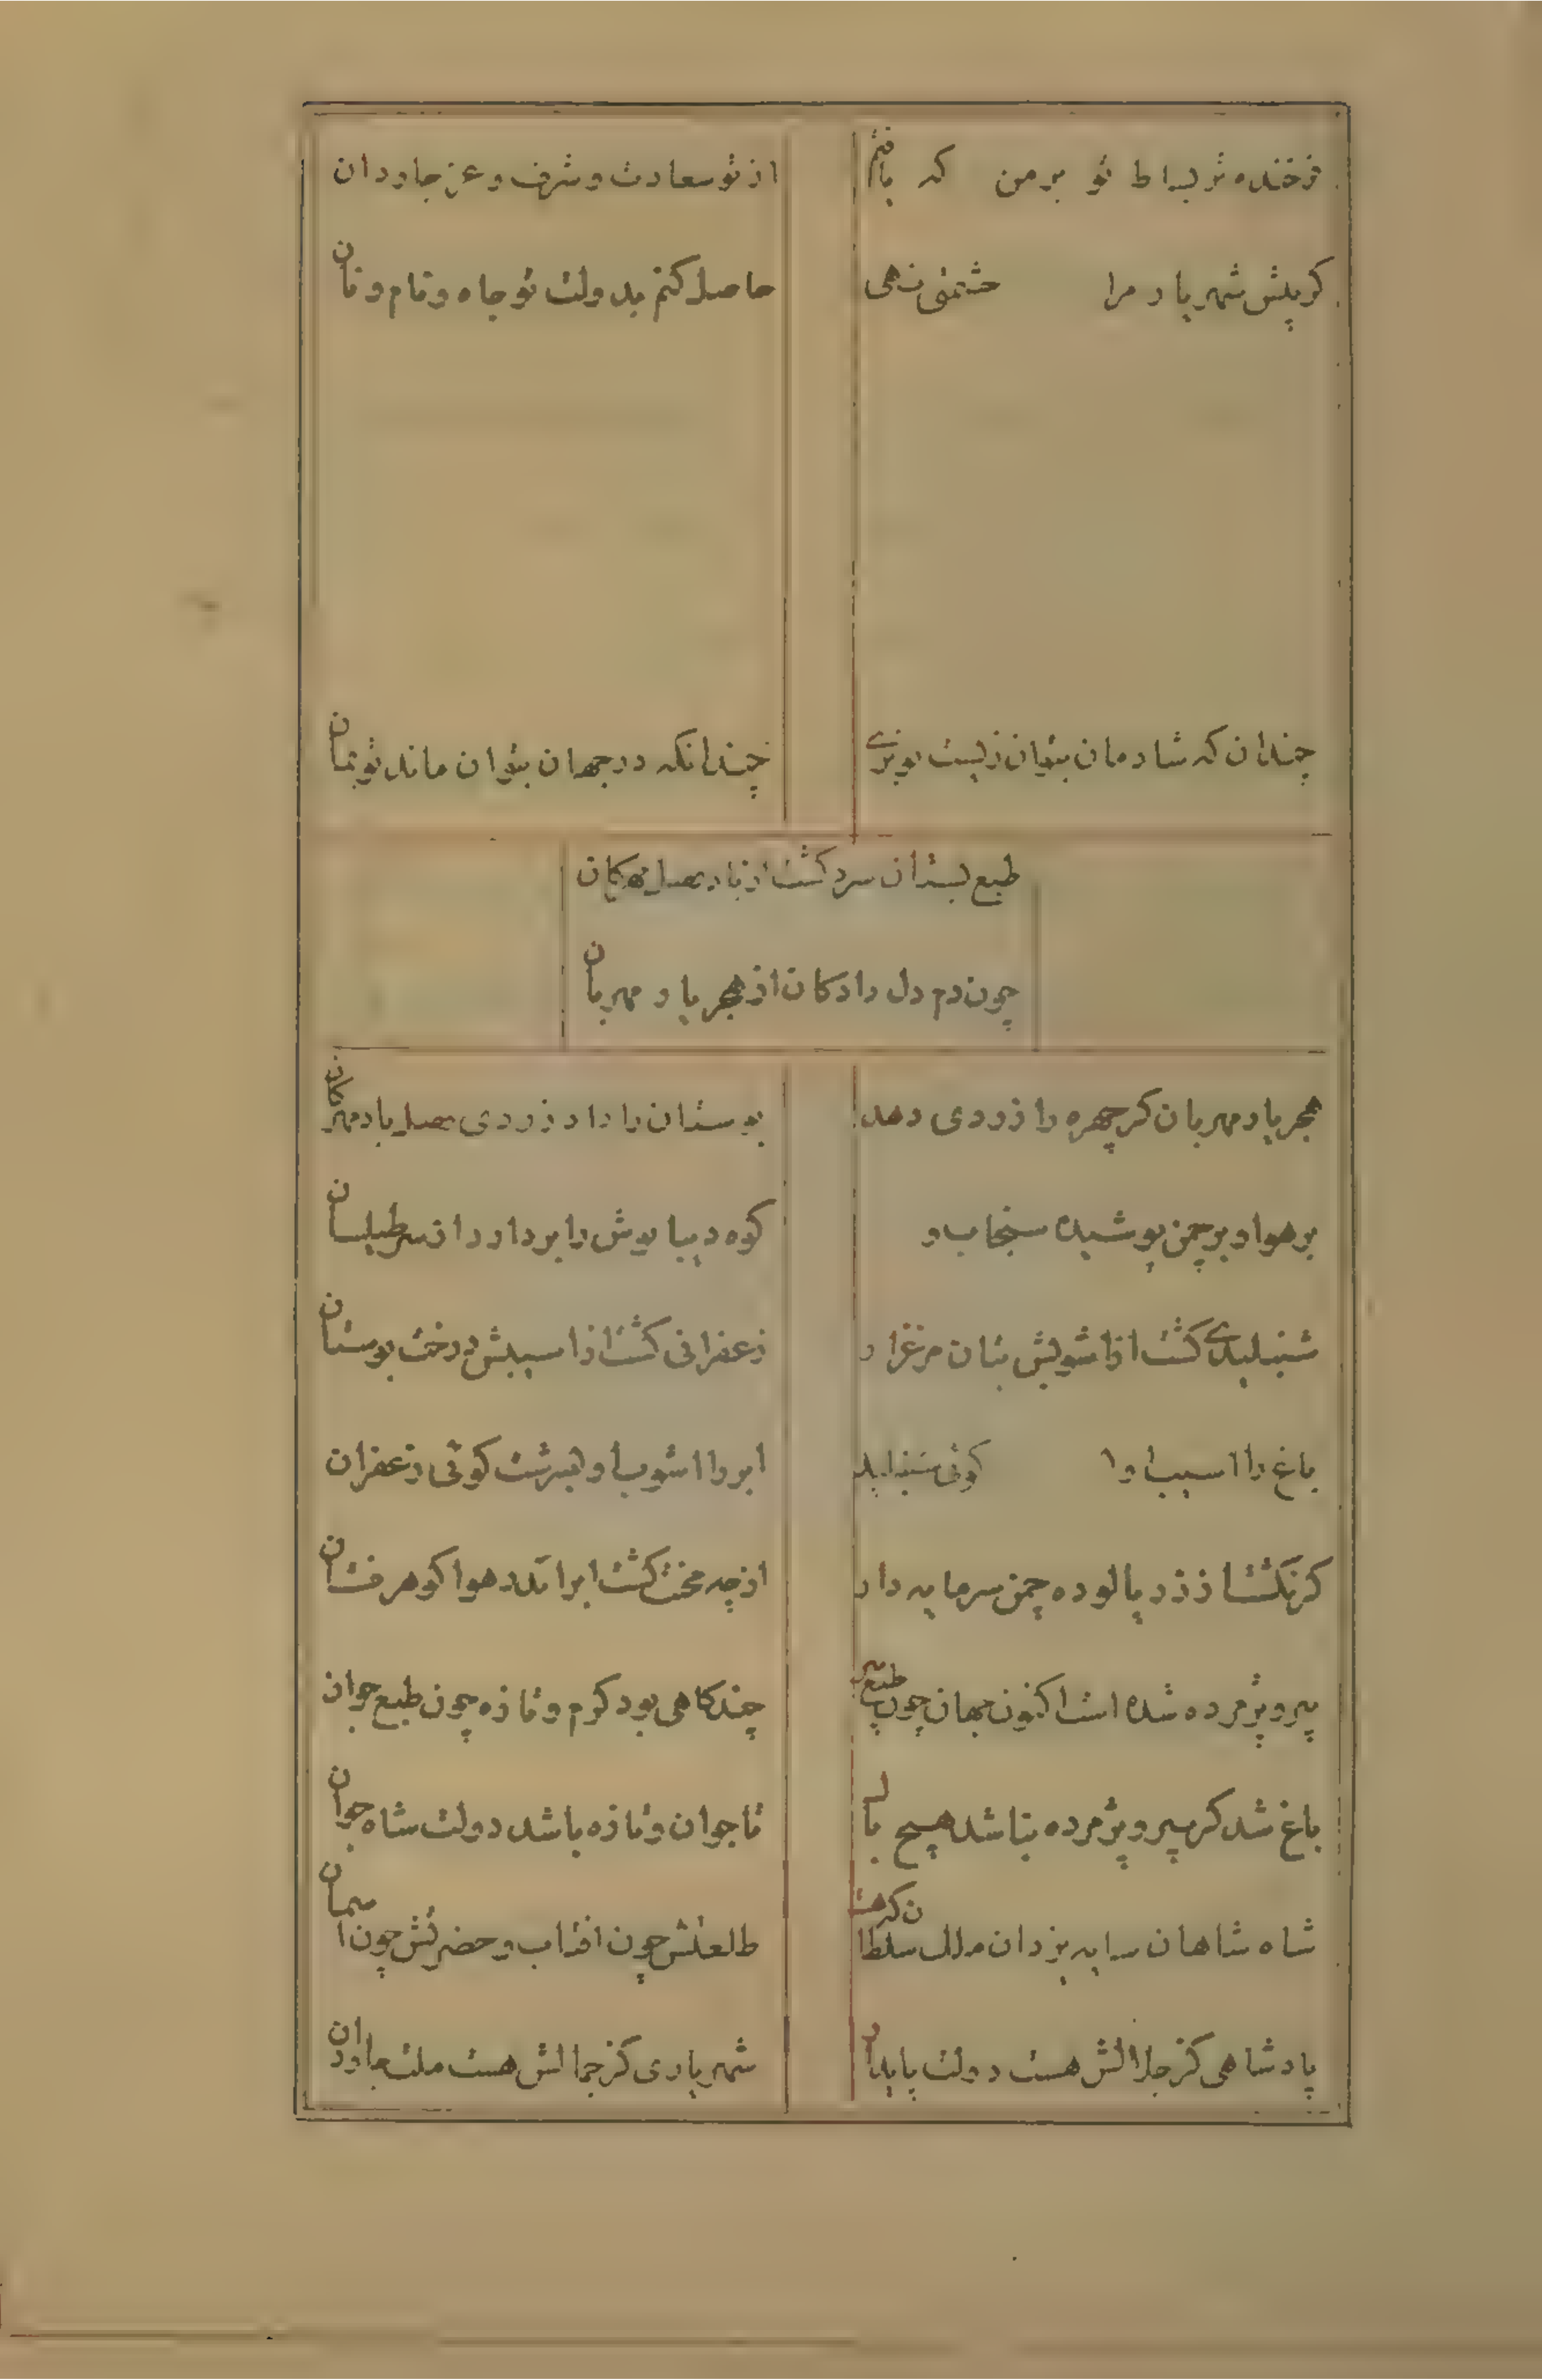 فرخنده تر بساط تو بر من که یافتم
از تو سعادت و شرف و عز جاودان
کر پیش شهریار مرا حشمتی نهی
حاصل کنم بدولت تو جاه و نام و نان
چندان که شادمان بتوان زیست تو بزی
چندانکه در جهان بتوان ماند تو بمان
طبع بستان سرد کشت از باد مهرکان
چون دم دل دادکان از هجر یار مهربان
هجر یار مهربان کر چهره را زردی دهد
بوستان را داد زردی باد مهرکان
بر هوا و بر چمن پوشیده سنجاب و
کوه دیبا پوش را بر دارد از سر طیلسان
شنبلیدی کشت از اشوبش بتان مرغزار
زعفرانی کشت از اسیبش درخت بوستان
باغ را اسیب او کوئی شنبلید
ابر را اشوب او کوئی زعفران
کر نکشت از زر پالوده چمن سرمایه دار
از چه کشت ابر اندر هوا کوهر فشان
پیر و پژمرده شده است اکنون جهان چون طبع پیر
چند کاهی بود کرم و تازه چون طبع جوان
باغ شد کر پیر و پژمرده نباشد هیچ باک
تا جوان و تازه باشد دولت شاه جوان
شاه شاهان سایه یزدان ملک سلطان که هست
طلعتش چون افتاب و حضرتش چون اسمان
پادشاهی کز جلالش هست دولت پایدار
شهریاری کز جمالش هست ملت جاودان